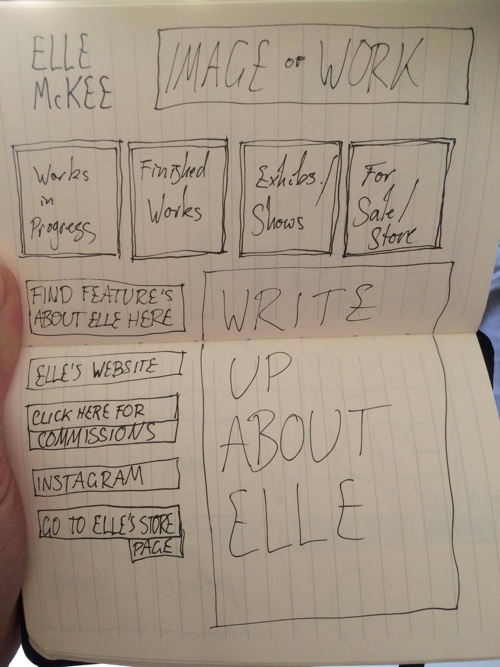 ELLE
McKEE
IMAGE OF WORK
Works
in
Progress
Finished
Works
Exhibs./
Shows
For
Sale/
Store
FIND FEATURE'S
ABOUT ELLE HERE
ELLE'S WEBSITE
CLICK HERE FOR
COMMISSIONS
INSTAGRAM
GO TO ELLE'S STORE
PAGE
WRITE
UP
ABOUT
ELLE